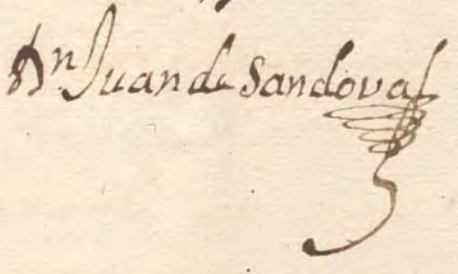 Dn Juan de Sandoval